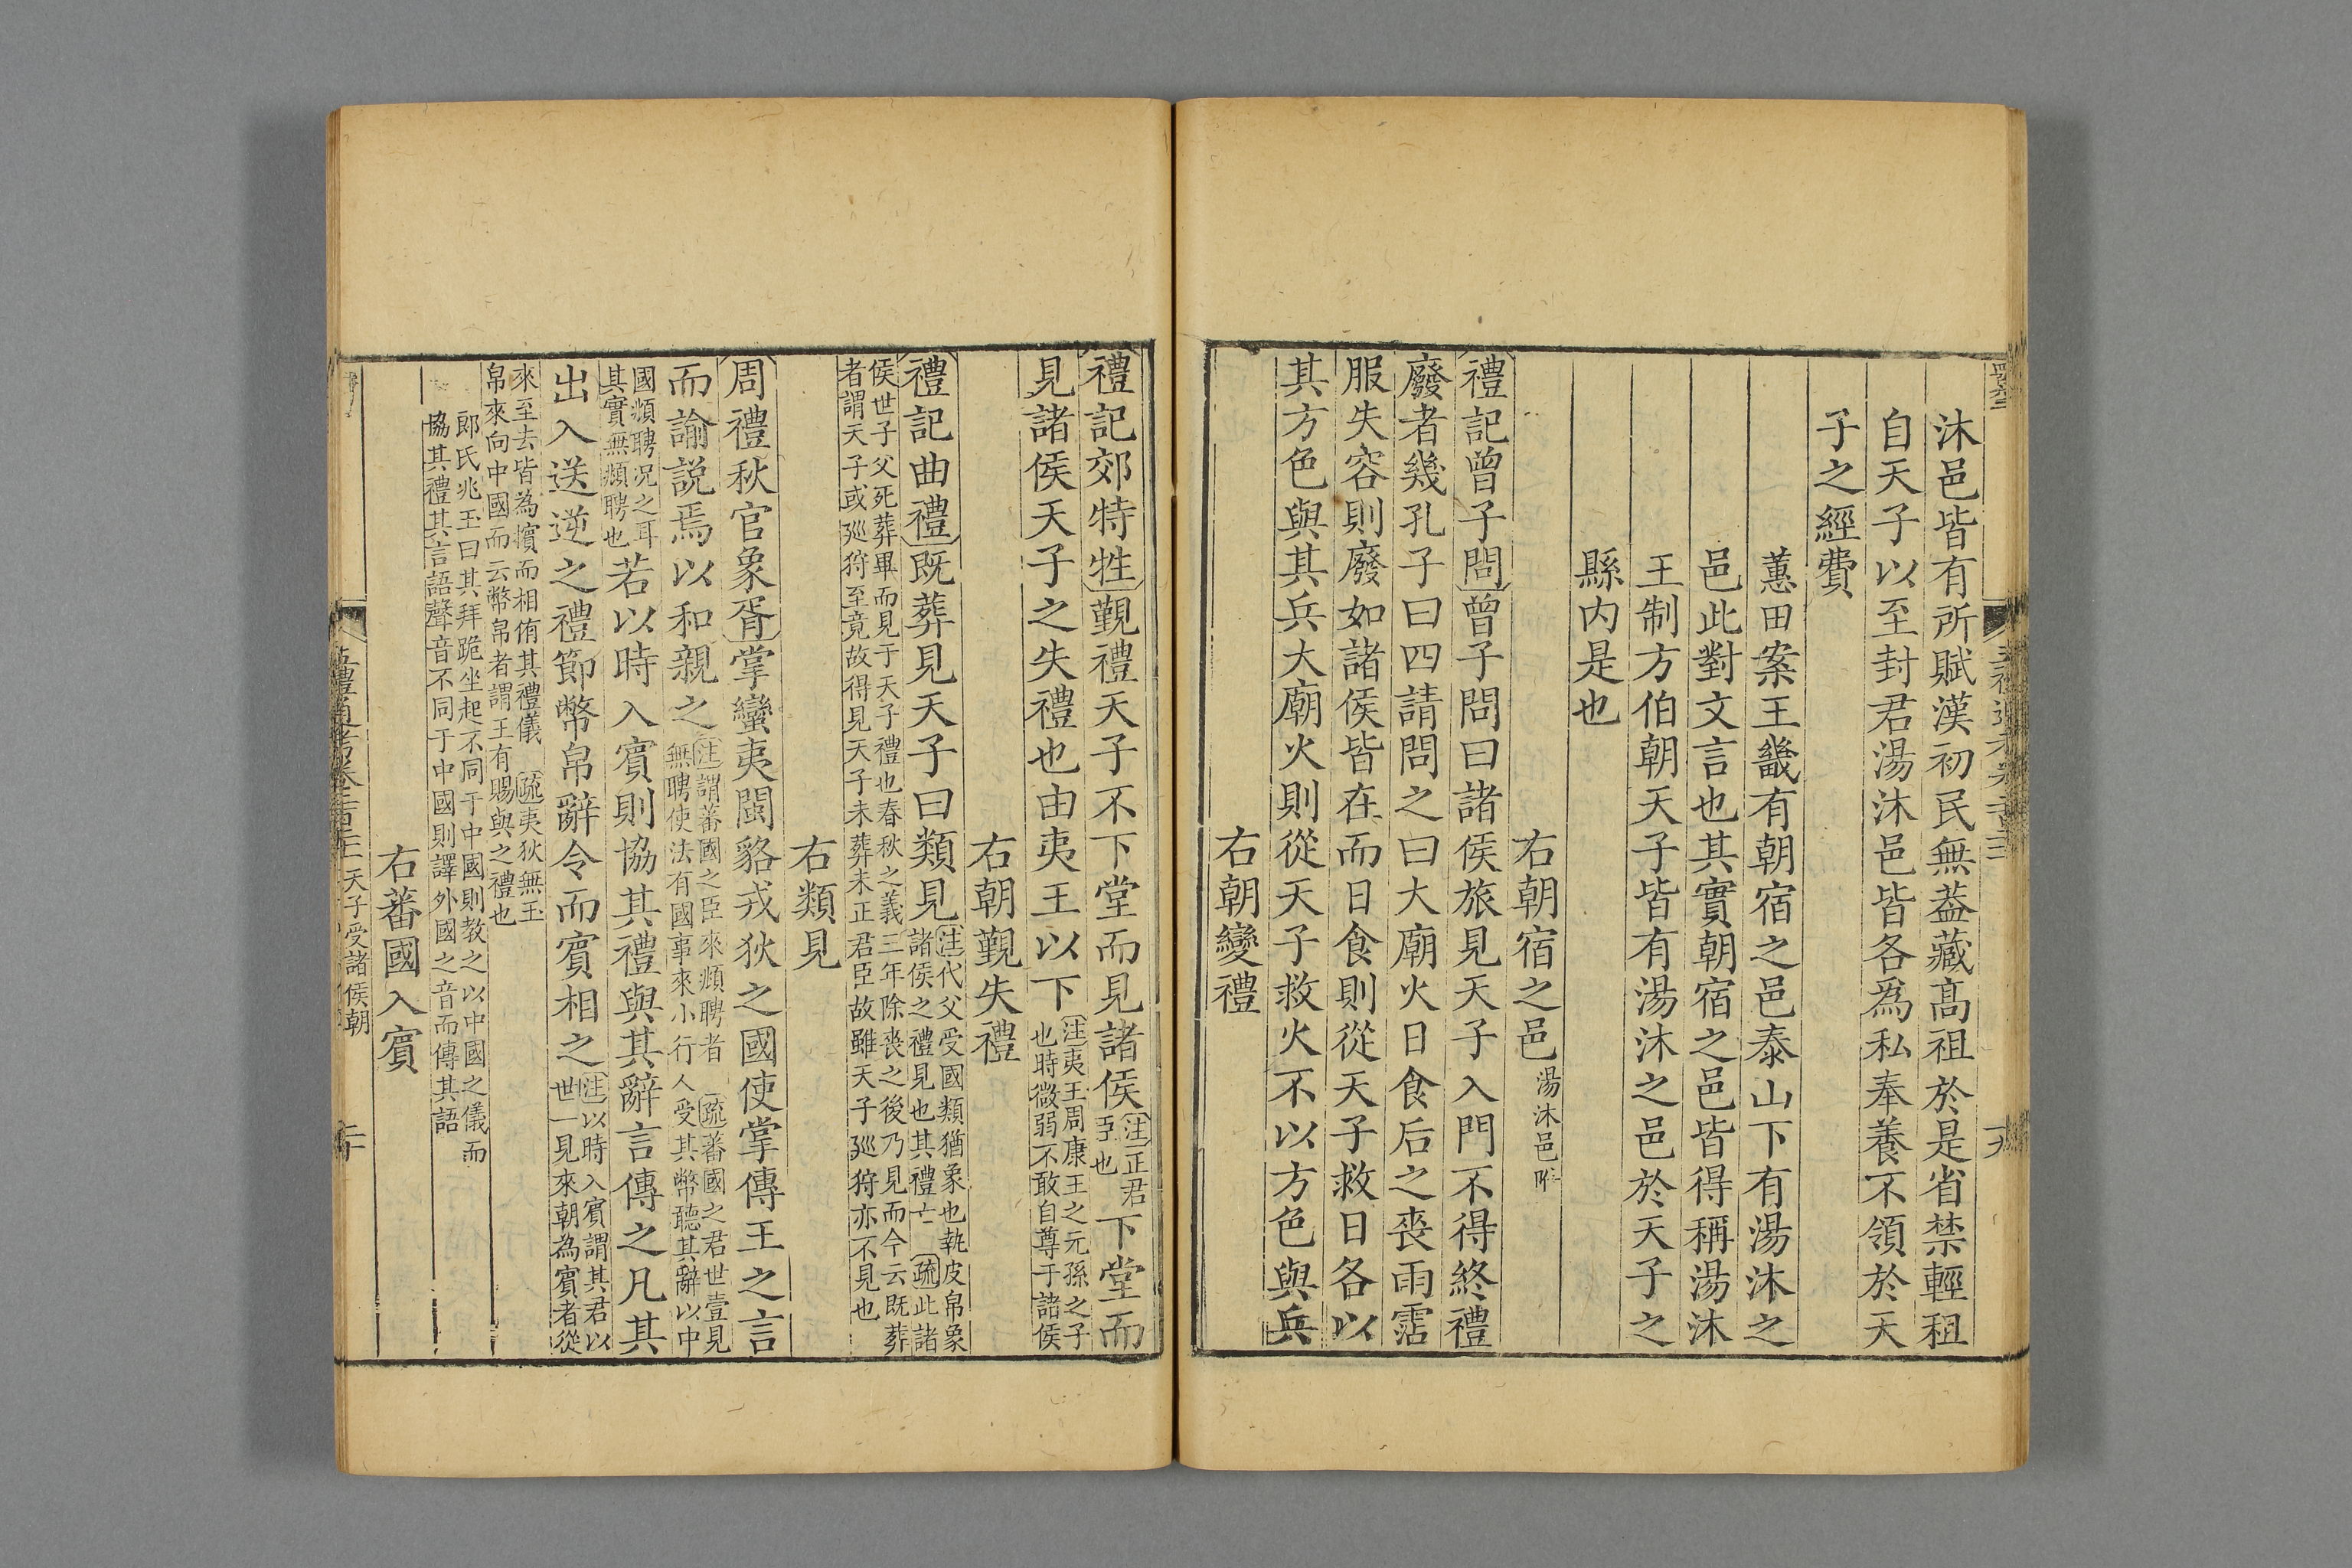 沐邑皆有所賦漢初民無葢藏髙祖於是省禁輕租
自天子以至封君湯沐邑皆各爲私奉養不領於天
子之經費
蕙田案王畿有朝宿之邑泰山下有湯沐之
邑此對文言也其實朝宿之邑皆得稱湯沐
王制方伯朝天子皆有湯沐之邑於天子之
縣内是也
右朝宿之邑 湯沐邑附
禮記曾子問曾子問曰諸侯旅見天子入門不得終禮
廢者幾孔子曰四請問之曰大廟火日食后之喪雨霑
服失容則廢如諸侯皆在而日食則從天子救日各以
其方色與其兵大廟火則從天子救火不以方色與兵
右朝變禮
禮記郊特牲覲禮天子不下堂而見諸侯注正君
臣也下堂而
見諸侯天子之失禮也由夷王以下注夷王周康王之元孫之子
也時微弱不敢自尊于諸侯
右朝覲失禮
禮記曲禮既葬見天子曰類見注代父受國類猶象也執皮帛象
諸侯之禮見也其禮亡 疏此諸
侯世子父死葬畢而見于天子禮也春秋之義三年除喪之後乃見而今云既葬
者謂天子或廵狩至竟故得見天子未葬未正君臣故雖天子廵狩亦不見也
右類見
周禮秋官象胥掌蠻夷閩貉戎狄之國使掌傳王之言
而諭説焉以和親之注謂蕃國之臣來頫聘者 疏蕃國之君世壹見
無聘使法有國事來小行人受其幣聽其辭以中
國頫聘况之耳
其實無頫聘也若以時入賓則協其禮與其辭言傳之凡其
出入送逆之禮節幣帛辭令而賓相之注以時入賓謂其君以
世一見來朝為賓者從
來至去皆為擯而相侑其禮儀 疏夷狄無玉
帛來向中國而云幣帛者謂王有賜與之禮也
郎氏兆玉曰其拜跪坐起不同于中國則教之以中國之儀而
協其禮其言語聲音不同于中國則譯外國之音而傳其語
右蕃國入賓
天子受諸侯朝
二十